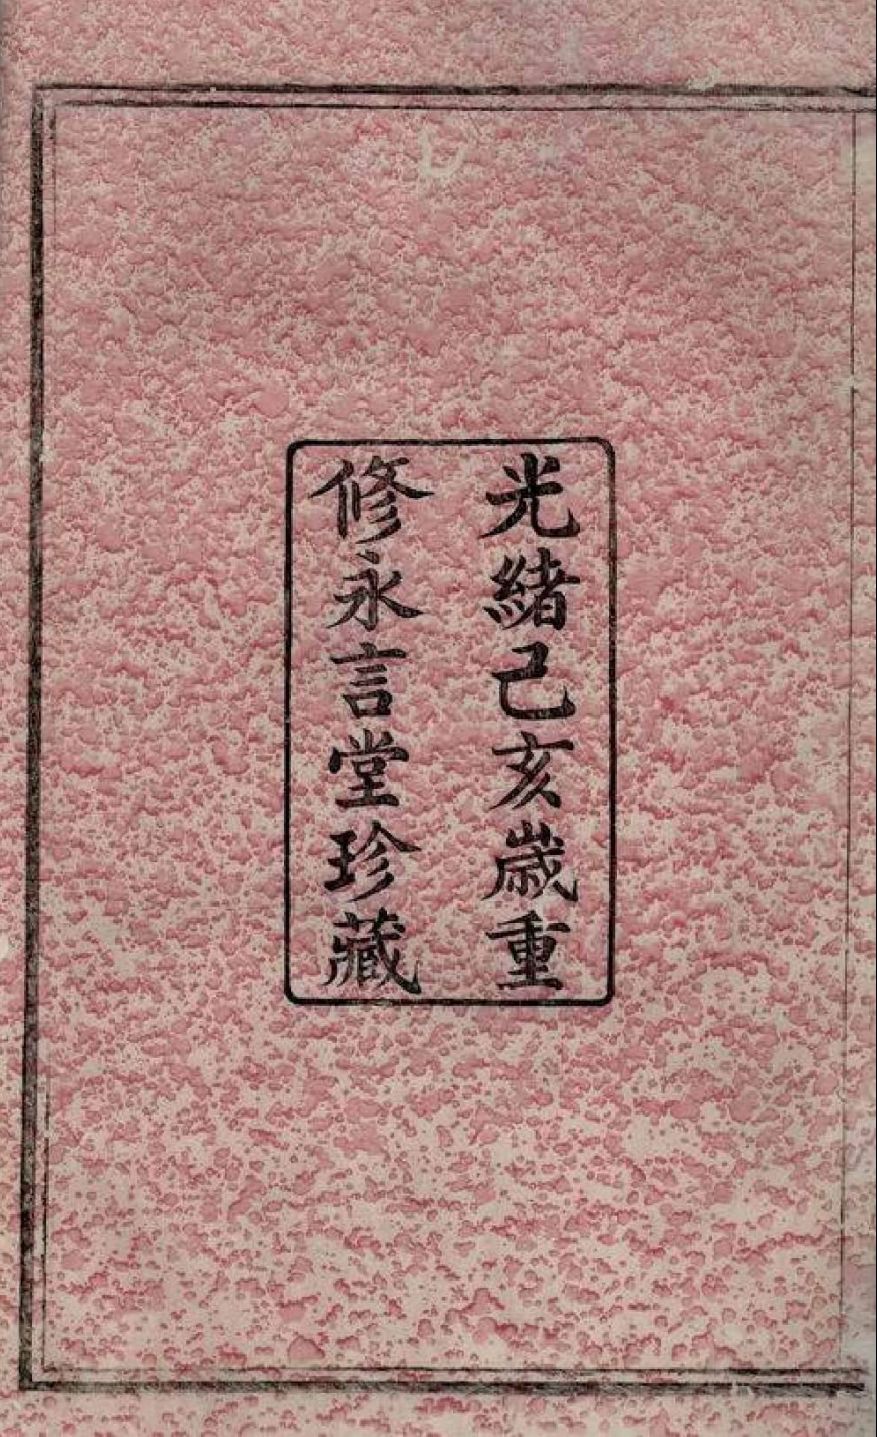 光緒己亥歲重
修永言堂珍藏